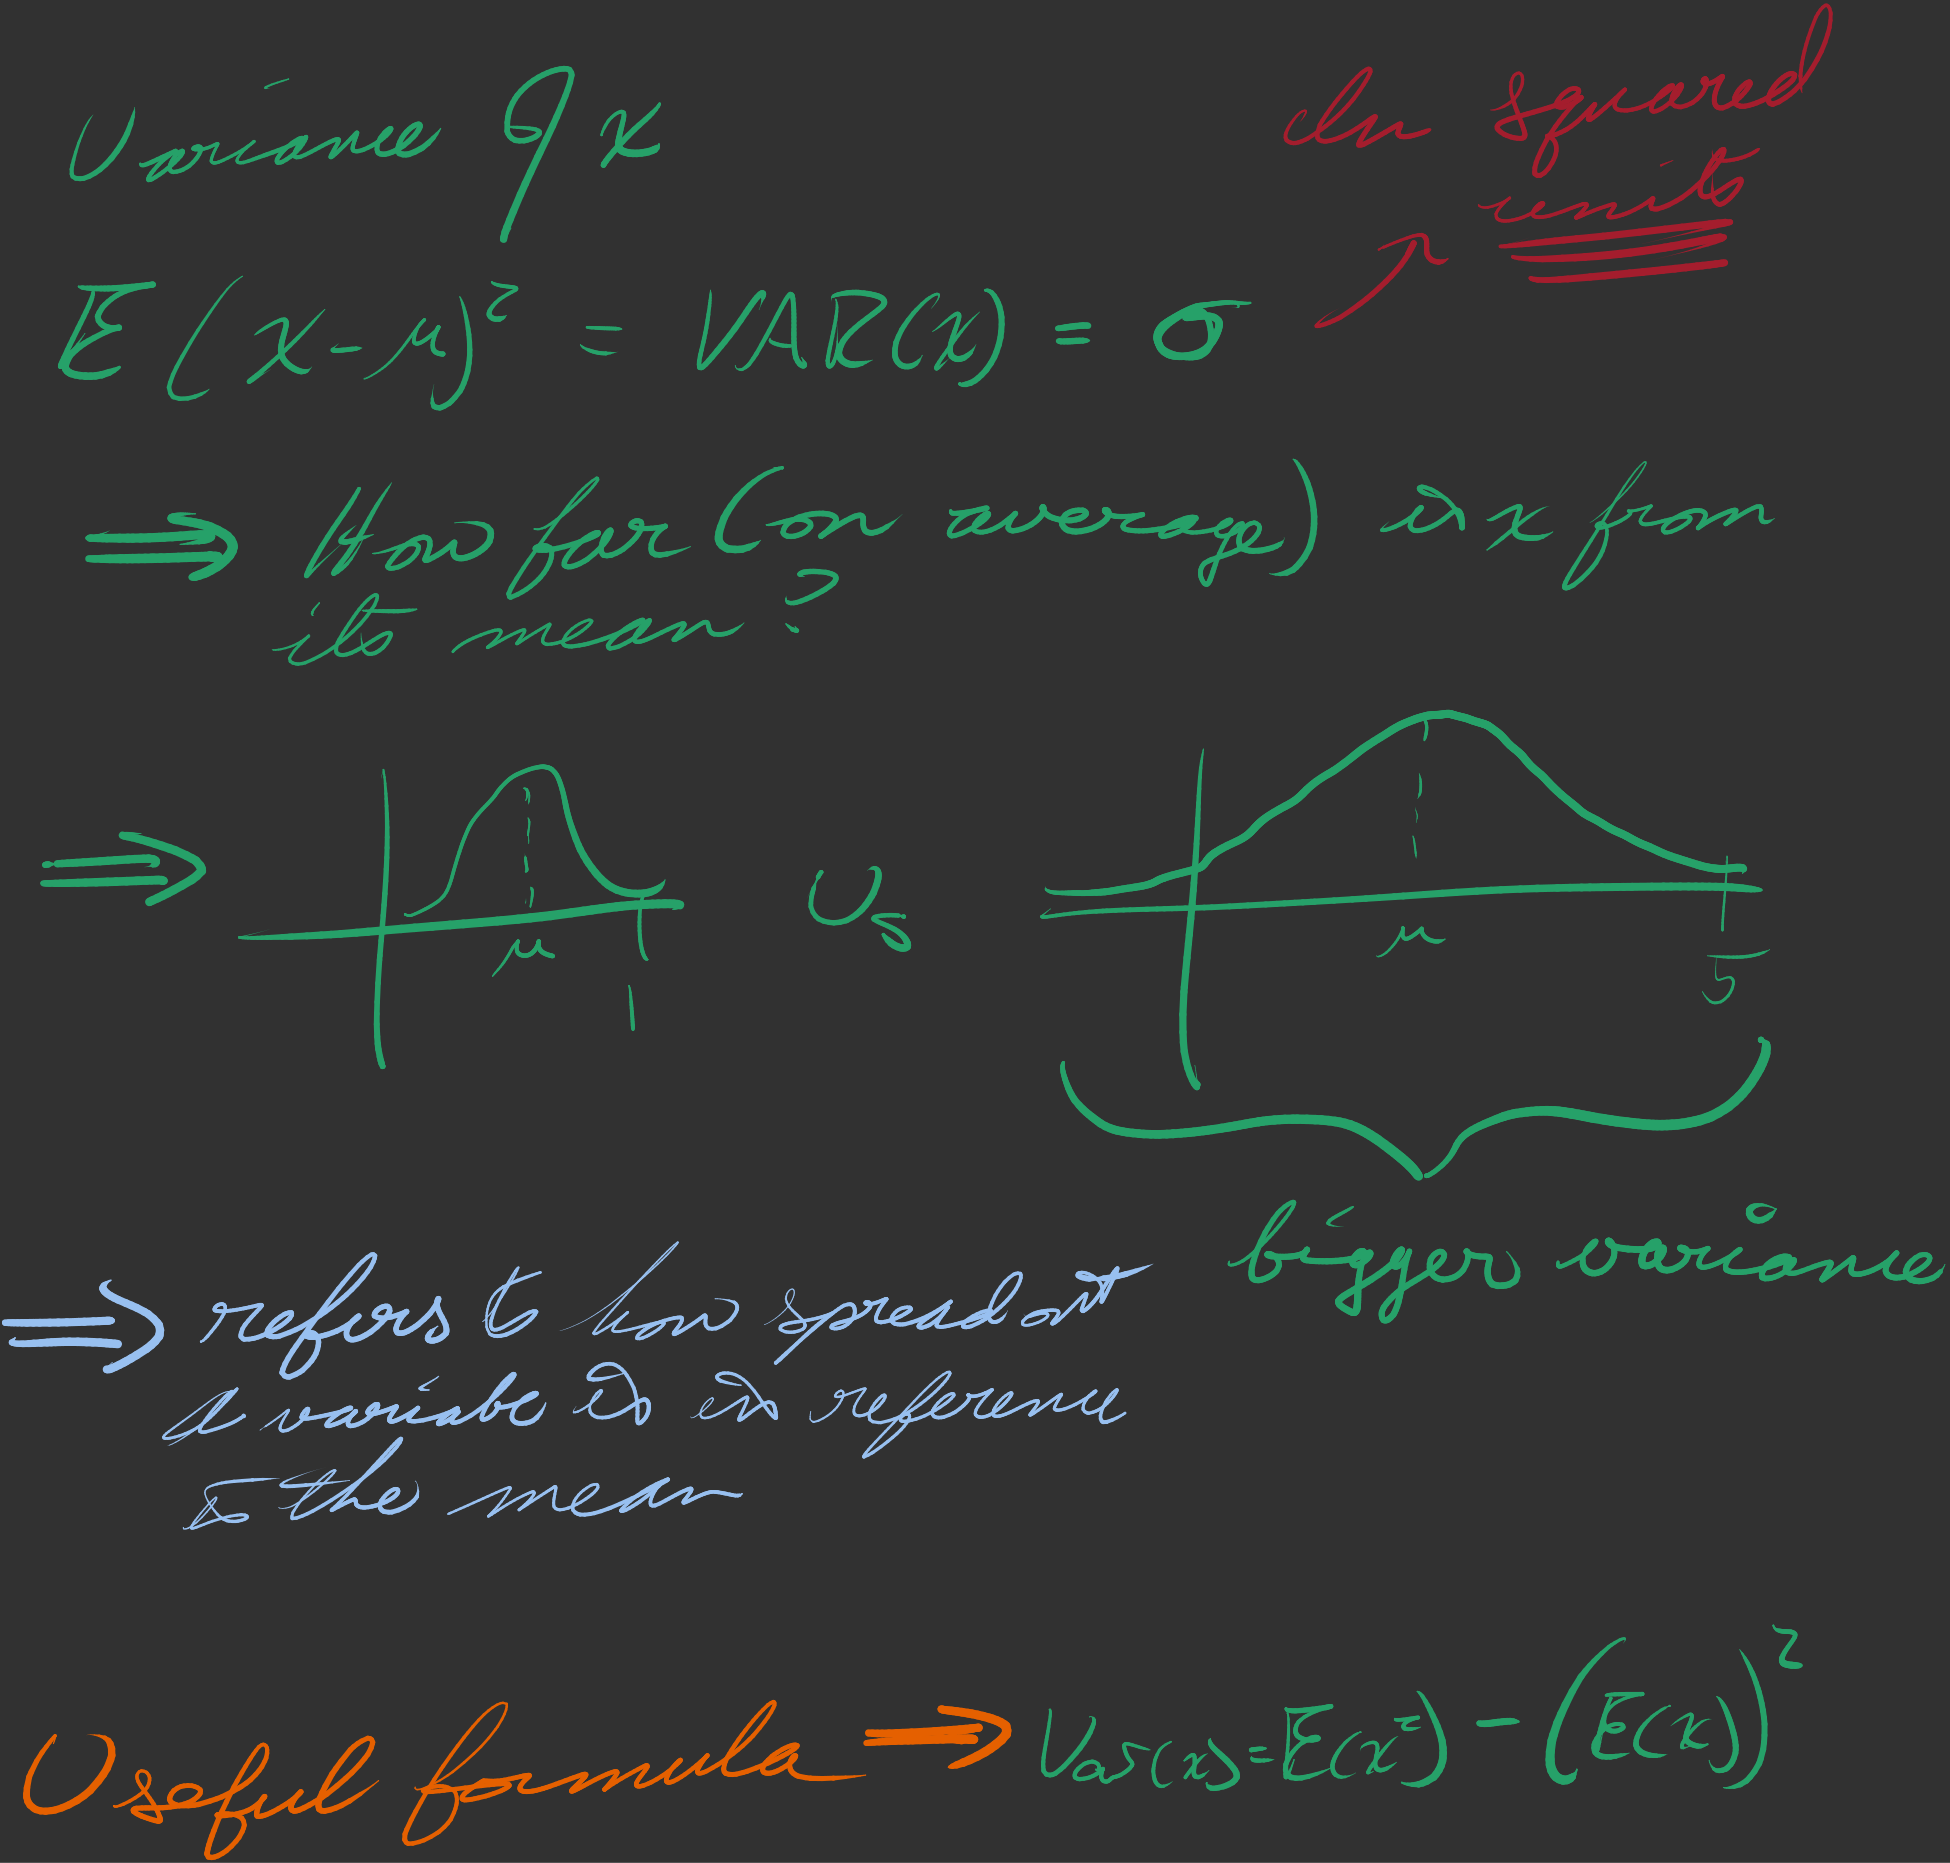 Variance of x
In squared
units
E(x-μ)² = VAR(x) = σ
How far (on average) is x from
its mean?
μ
1
vs
μ
5
bigger variance
refers to how spread out
a variable is in reference
to the mean
Useful formula ⇒ Var(x)=E(x²) - (E(x))²